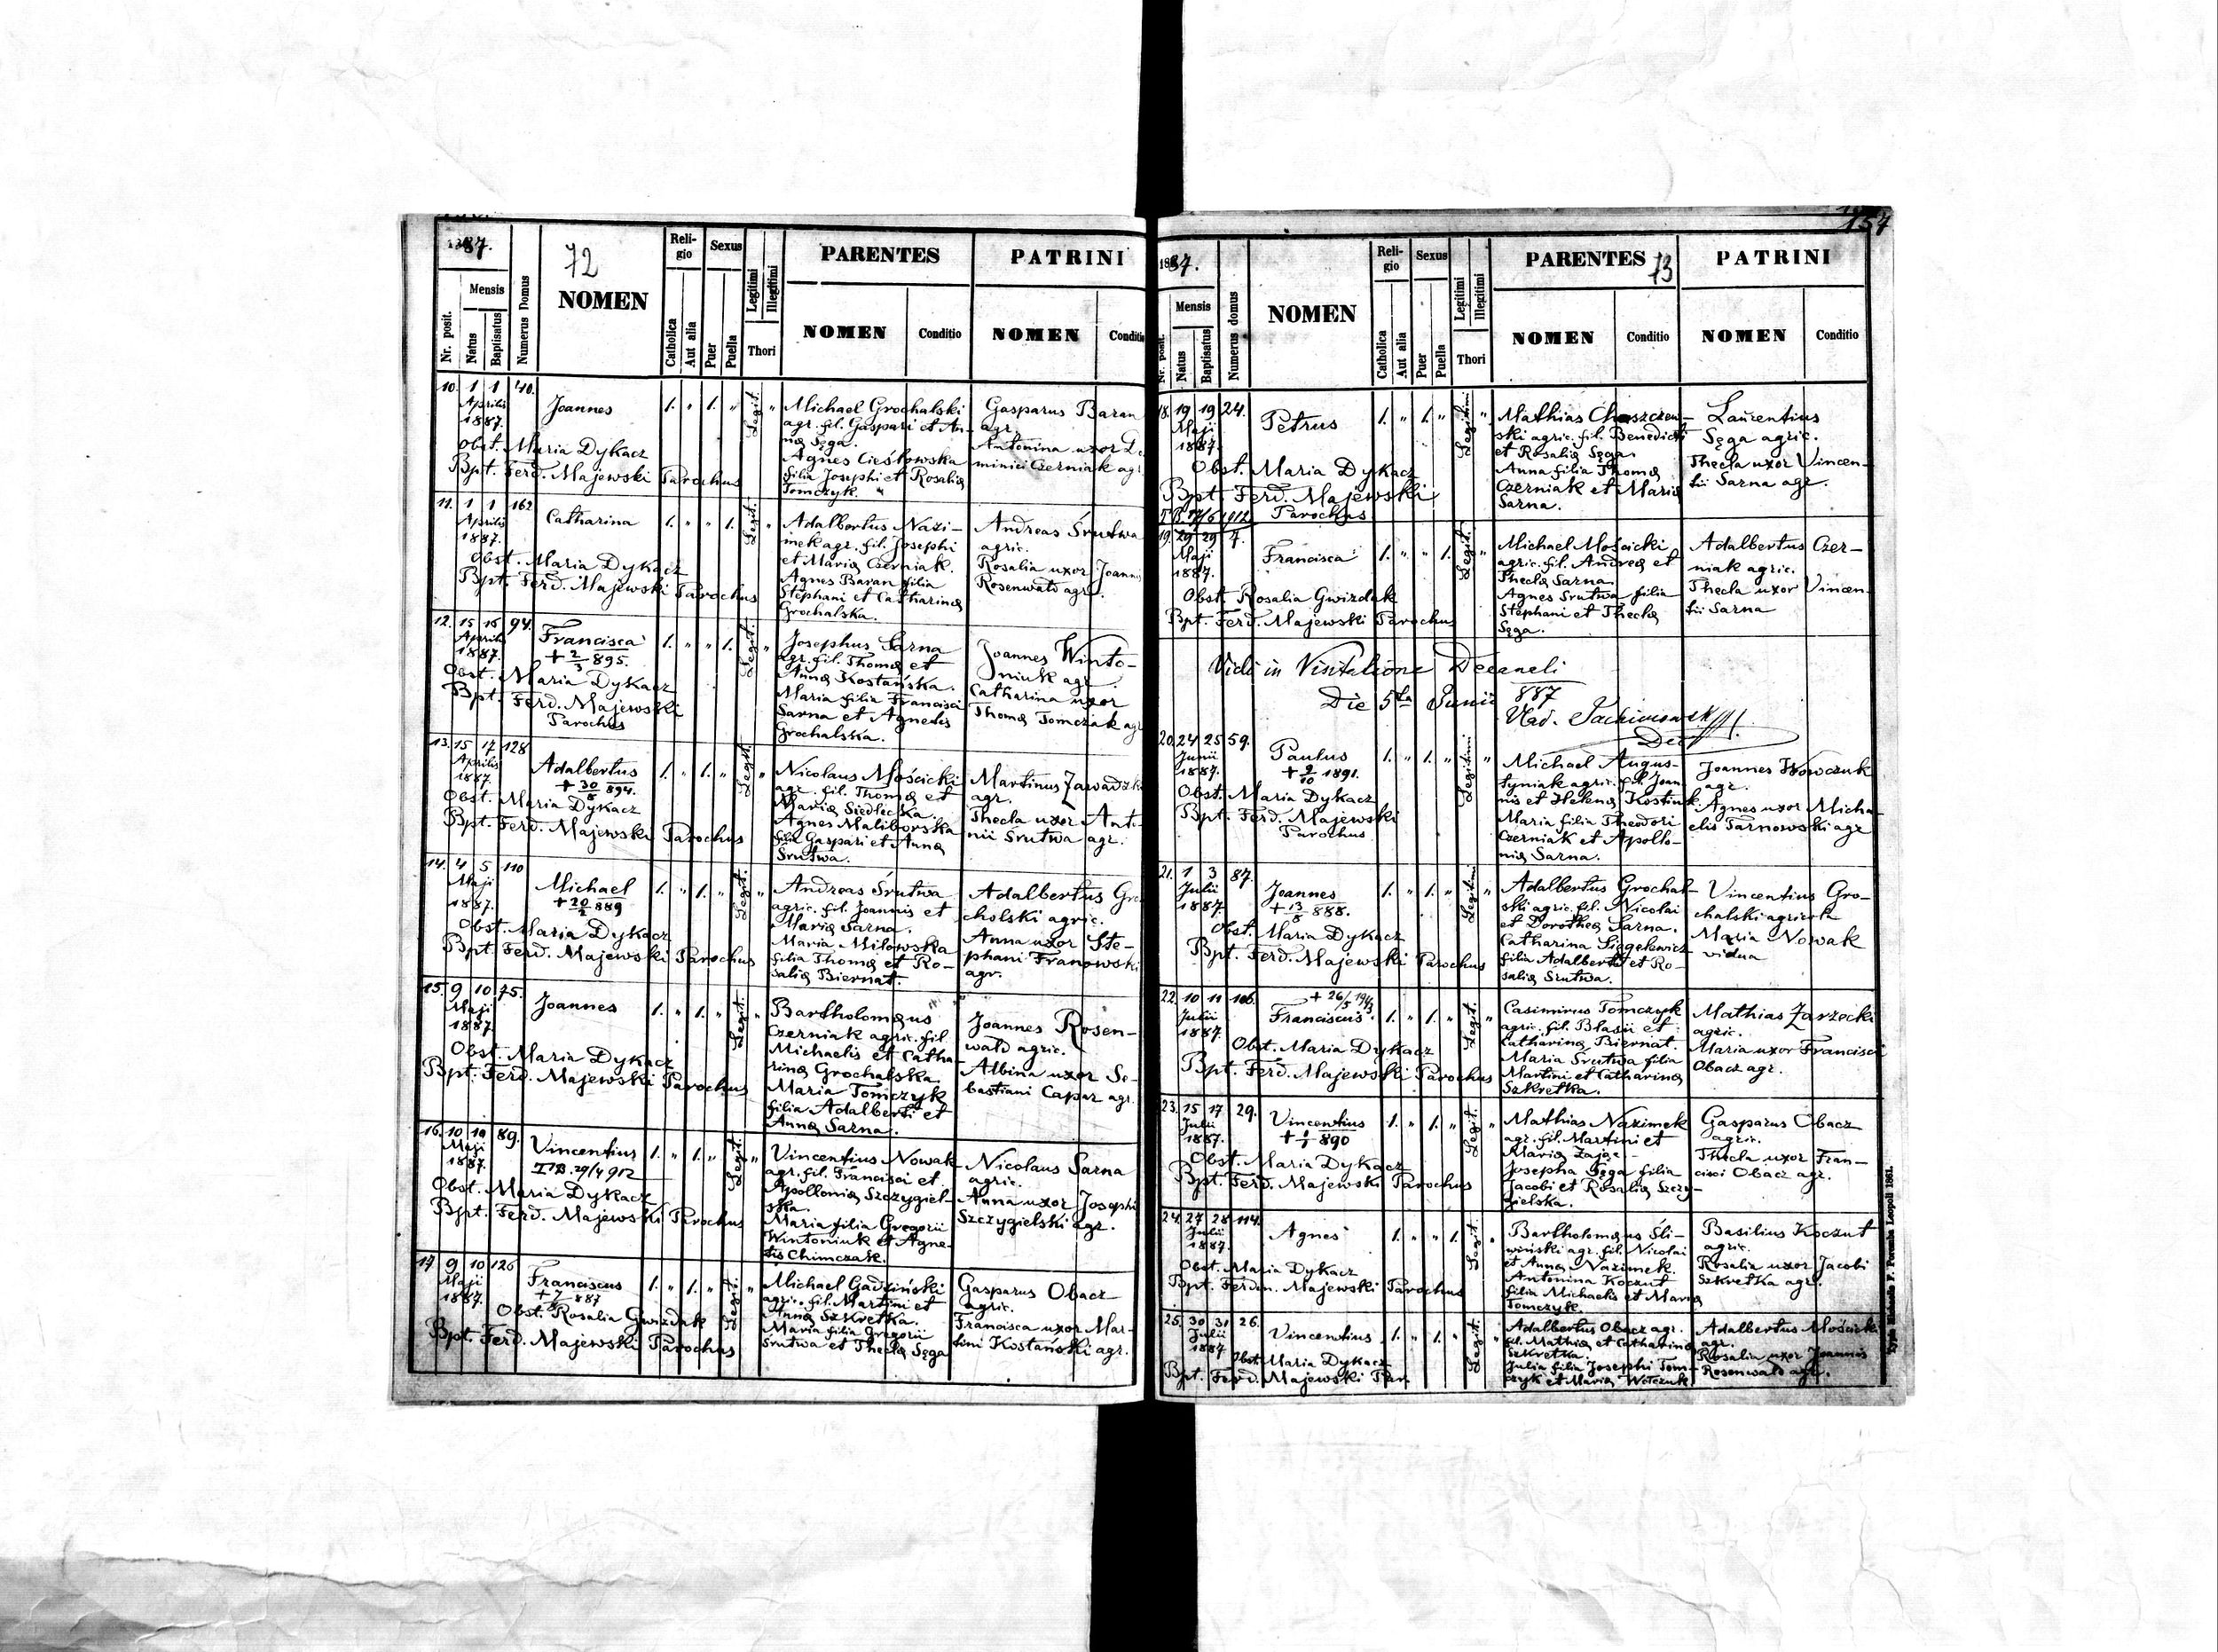 1887.
72
Nr. posit.
Mensis
Natus
Baptisatus
Numerus Domus
NOMEN
Religio
Catholica
Aut alia
Sexus
Puer
Puella
Legitimi
Illegitimi
Thori
PARENTES
NOMEN
Conditio
PATRINI
NOMEN
Conditi
10. 1 1 40.
Aprilis
1887.
Joannes
1. " 1. " Legit. "
Obst. Maria Dykacz
Bpt. Ferd. Majewski Parochus
Michael Grochalski
agr. fil. Gaspari et An-
næ Sęga.
Agnes Cieślowska
filia Josephi et Rosaliæ
Tomczyk.
Gasparus Baran
agr.
Antonina uxor Do
minici Czerniak agr
11. 1 1 162
Aprilis
1887.
Catharina
1. " " 1. Legit. "
Obst. Maria Dykacz
Bpt. Ferd. Majewski Parochus
Adalbertus Nazi-
mek agr. fil. Josephi
et Mariæ Czerniak.
Agnes Baran filia
Stephani et Catharinæ
Grochalska.
Andreas Śrutwa
agric.
Rosalia uxor Joannis
Rosenwald agr.
12. 15 16 94.
Aprilis
1887.
Francisca
+ 2/3 895.
1. " " 1. Legit. "
Obst. Maria Dykacz
Bpt. Ferd. Majewski
Parochus
Josephus Sarna
agr. fil. Thomæ et
Annæ Kostańska.
Maria filia Francisci
Sarna et Agnetis
Grochalska.
Joannes Winto-
niuk agr.
Catharina uxor
Thomæ Tomczak agr
13. 15 17 128
Aprilis
1887.
Adalbertus
+ 30/8 894.
1. " 1. " Legit. "
Obst. Maria Dykacz
Bpt. Ferd. Majewski Parochus
Nicolaus Mościcki
agr. fil. Thomæ et
Mariæ Siedlecka.
Agnes Maliborska
fil. Gaspari et Annæ
Śrutwa.
Martinus Zawadzki
agr.
Thecla uxor Anto-
nii Śrutwa agr.
14. 4 5 110
Maji
1887.
Michael
+ 20/2 889
1. " 1. " Legit. "
Obst. Maria Dykacz
Bpt. Ferd. Majewski Parochus
Andreas Śrutwa
agric. fil. Joannis et
Mariæ Sarna.
Maria Milowska
filia Thomæ et Ro-
saliæ Biernat.
Adalbertus Gro
cholski agric.
Anna uxor Ste-
phani Franowski
agr.
15. 9 10 75.
Maji
1887
Joannes
1. " 1. " Legit. "
Obst. Maria Dykacz
Bpt. Ferd. Majewski Parochus
Bartholomæus
Czerniak agric. fil.
Michaelis et Catha-
rinæ Grochalska
Maria Tomczyk
filia Adalberti et
Annæ Sarna.
Joannes Rosen-
wald agric.
Albina uxor Se-
bastiani Capar agr.
16. 10 10 89.
Maji
1887.
Vincentius
TB. 29/4 912
1. " 1. " Legit. "
Obst. Maria Dykacz
Bpt. Ferd. Majewski Parochus
Vincentius Nowak
agr. fil. Francisci et
Apolloniæ Szczygiel-
ska.
Maria filia Gregorii
Wintoniuk et Agne-
tis Chimczak.
Nicolaus Sarna
agric.
Anna uxor Josephi
Szczygielski agr.
17 9 10 126
Maji
1887.
Franciscus
1. " 1. " Legit. "
Obst. Rosalia Gwizdak
Bpt. Ferd. Majewski Parochus
Michael Gadziński
agric. fil. Martini et
Annæ Szkretka.
Maria filia Gregorii
Śrutwa et Theclæ Sęga
Gasparus Obacz
agric.
Francisca uxor Mar-
tini Kostański agr.
157
1887.
73
Nr. posit.
Mensis
Natus
Baptisatus
Numerus domus
NOMEN
Religio
Catholica
Aut alia
Sexus
Puer
Puella
Legitimi
Illegitimi
Thori
PARENTES
NOMEN
Conditio
PATRINI
NOMEN
Conditio
18. 19 19 24.
Maji
1887.
Petrus
1. " 1. " Legitimi "
Obst. Maria Dykacz
Bpt. Ferd. Majewski
Parochus
TB. 17/6 1912
Mathias Choszczew-
ski agric. fil. Benedicti
et Rosaliæ Sęga.
Anna filia Thomæ
Czerniak et Mariæ
Sarna.
Laurentius
Sęga agric.
Thecla uxor Vincen-
tii Sarna agr.
19. 29 29 7.
Maji
1887.
Francisca
1. " " 1. Legit. "
Obst. Rosalia Gwizdak
Bpt. Ferd. Majewski Parochus
Michael Mościcki
agric. fil. Andreæ et
Theclæ Sarna
Agnes Śrutwa filia
Stephani et Theclæ
Sęga.
Adalbertus Czer-
niak agric.
Thecla uxor Vincen
tii Sarna
Vidi in Visitatione Decanali
Die 5ta Junii 887
20. 24 25 59.
Junii
1887.
Paulus
+ 9/10 1891.
1. " 1. " Legitimi "
Obst. Maria Dykacz
Bpt. Ferd. Majewski
Parochus
Michael Augus-
tyniak agric. fil. Joan
nis et Helenæ Kostiuk.
Maria filia Theodori
Czerniak et Apollo-
niæ Sarna.
Joannes Wowczuk
agr.
Agnes uxor Micha-
elis Tarnowski agr
21. 1 3 87.
Julii
1887.
Joannes
+ 13/8 888.
1. " 1. " Legitimi "
Obst. Maria Dykacz
Bpt. Ferd. Majewski Parochus
Adalbertus Grochal-
ski agric. fil. Nicolai
et Dorotheæ Sarna.
Catharina
filia Adalberti et Ro-
saliæ Śrutwa.
Vincentius Gro-
chalski agricola
Maria Nowak
vidua
22. 10 11 106.
Julii
1887.
+ 26/5 1943
Franciscus
1. " 1. " Legit. "
Obst. Maria Dykacz
Bpt. Ferd. Majewski Parochus
Casimirus Tomczyk
agric. fil. Blasii et
Catharinæ Biernat.
Maria Śrutwa filia
Martini et Catharinæ
Szkretka.
Mathias Zarzecki
agric.
Maria uxor Francisci
Obacz agr.
23. 15 17 29.
Julii
1887.
Vincentius
+ 1/1 890
1. " 1. " Legit. "
Obst. Maria Dykacz
Bpt. Ferd. Majewski Parochus
Mathias Nazimek
agr. fil. Martini et
Mariæ Zając -
Josepha Sęga filia
Jacobi et Rosaliæ Szczy-
gielska.
Gasparus Obacz
agric.
Thecla uxor Fran-
cisci Obacz agr.
24. 27 28 114.
Julii
1887.
Agnes
1. " " 1. Legit. "
Obst. Maria Dykacz
Bpt. Ferdin. Majewski Parochus
Bartholomæus Śli-
wiński agr. fil. Nicolai
et Annæ Nazimek.
Antonina Koczut
filia Michaelis et Mariæ
Tomczyk.
Basilius Koczut
agric.
Rosalia uxor Jacobi
Szkretka agr.
25. 30 31 26.
Julii
1887
Vincentius
1. " 1. " Legit. "
Obst. Maria Dykacz
Bpt. Ferd. Majewski Par.
Adalbertus Obacz agr.
fil. Mathiæ et Catharinæ
Szkretka.
Julia filia Josephi Tom-
czyk et Mariæ
Adalbertus Mościcki
agr.
Rosalia uxor Joannis
Rosenwald agr.